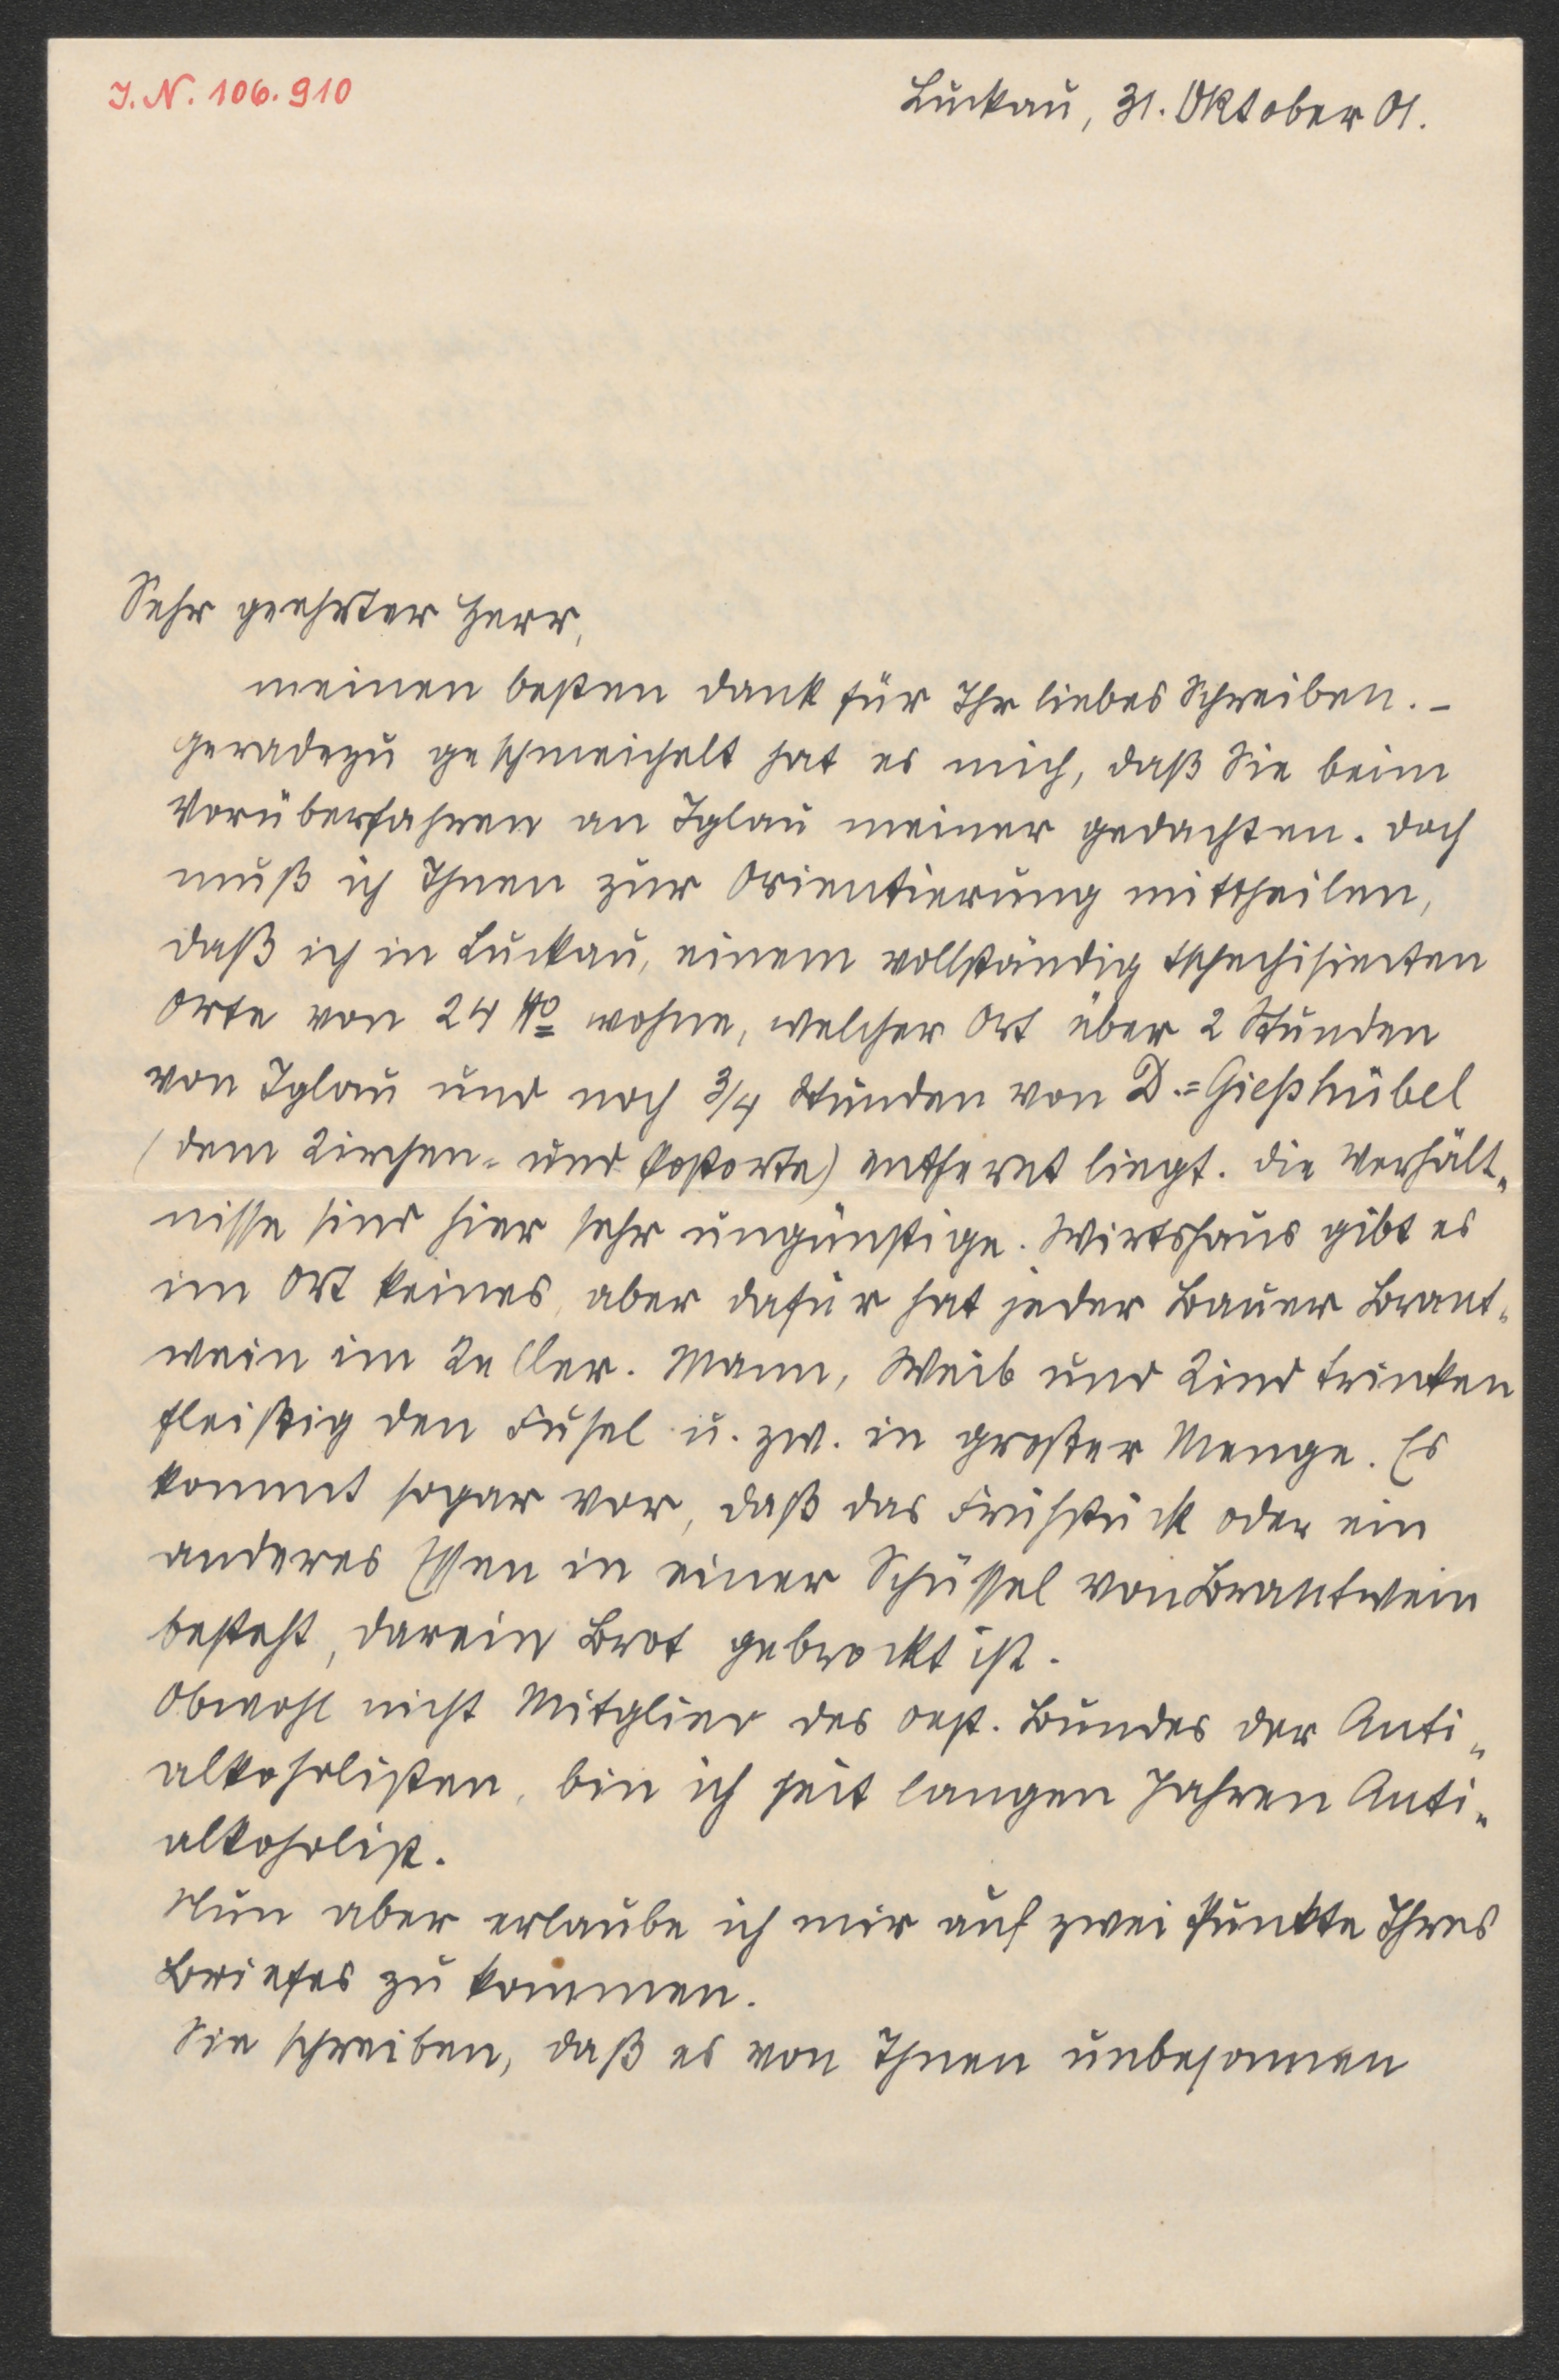 J. N. 106.910
Luckau, 31. Oktober 01.
Sehr geehrter Herr,
meinen besten Dank für Ihr liebes Schreiben. –
Geradezu geschmeichelt hat es mich, daß Sie beim
Vorüberfahren an Iglau meiner gedachten. Doch
muß ich Ihnen zur Orientierung mittheilen,
daß ich in Luckau, einem vollständig tschechisierten
Orte von 24 No wohne, welcher Ort über 2 Stunden
von Iglau und noch 3/4 Stunden von D.=Gießhübel
(dem Kirchen- und Postorte) entfernt liegt. Die Verhält-
nisse sind hier sehr ungünstige. Wirtshaus gibt es
im Ort keines, aber dafür hat jeder Bauer Brant-
wein im Keller. Mann, Weib und Kind trinken
fleißig den Fusel u. zw. in großer Menge. Es
kommt sogar vor, daß das Frühstück oder ein
anderes Essen in einer Schüssel von Brantwein
besteht, darein Brot gebrockt ist.
Obwohl nicht Mitglied des oest. Bundes der Anti-
alkoholisten, bin ich seit langen Jahren Anti-
alkoholist.
Nun aber erlaube ich mir auf zwei Punkte Ihres
Briefes zu kommen.
Sie schreiben, daß es von Ihnen unbesonnen